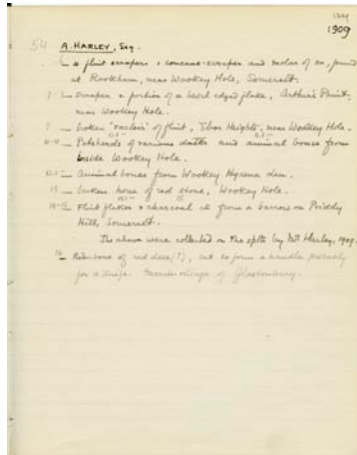 1909
1909
54 A. HARLEY, Esq.
4 flint scrapers, concave-scraper and molar of ox, found
at Rookham, near Wookey Hole, Somerset.
scraper & portion of a bevel edged flake, Arthur's Point,
near Wookey Hole.
broken "racloir" of flint, Ebor Heights, near Wookey Hole.
Potsherds of various dates and animal bones from
inside Wookey Hole.
Animal bones from Wookey Hyaena den.
broken hone of red stone, Wookey Hole.
Flint flakes & charcoal from a barrow on Priddy
Hill, Somerset.
The above were collected on the spots by Mr Harley, 1909.
16 bone of red deer(?), cut to form a handle probably
for a knife. Glastonbury.